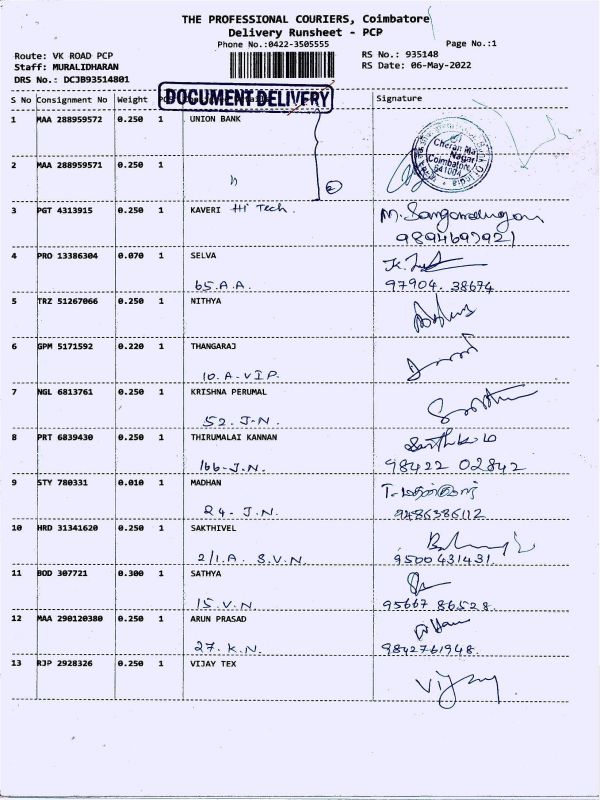 THE PROFESSIONAL COURIERS, Coimbatore
Delivery Runsheet - PCP
Phone No.:0422-3505555
Page No.:1
Route: VK ROAD PCP
RS No.: 935148
Staff: MURALIDHARAN
RS Date: 06-May-2022
DRS No.: DCJB93514801
DOCUMENT DELIVERY
S No Consignment No Weight Signature
1 MAA 288959572 0.250 1 UNION BANK
Cheran Ma
Nagar
Coimbatore
641004
2 MAA 288959571 0.250 1
3 PGT 4313915 0.250 1 KAVERI Hi Tech.
9894697921
4 PRO 13386304 0.070 1 SELVA
65.A.A. 97904. 38674
5 TRZ 51267066 0.250 1 NITHYA
6 GPM 5171592 0.220 1 THANGARAJ
10. A. V I P.
7 NGL 6813761 0.250 1 KRISHNA PERUMAL
52. J.N.
8 PRT 6839430 0.250 1 THIRUMALAI KANNAN
166-J.N. 98422 02842
9 STY 780331 0.010 1 MADHAN
24. J.N. 9486386112
10 HRD 31341620 0.250 1 SAKTHIVEL
2/1.A. S.V.N. 9500431431.
11 BOD 307721 0.300 1 SATHYA
15. V.N. 95667 86528.
12 MAA 290120380 0.250 1 ARUN PRASAD
27. K.N. 9842761948.
13 RJP 2928326 0.250 1 VIJAY TEX
Vijay